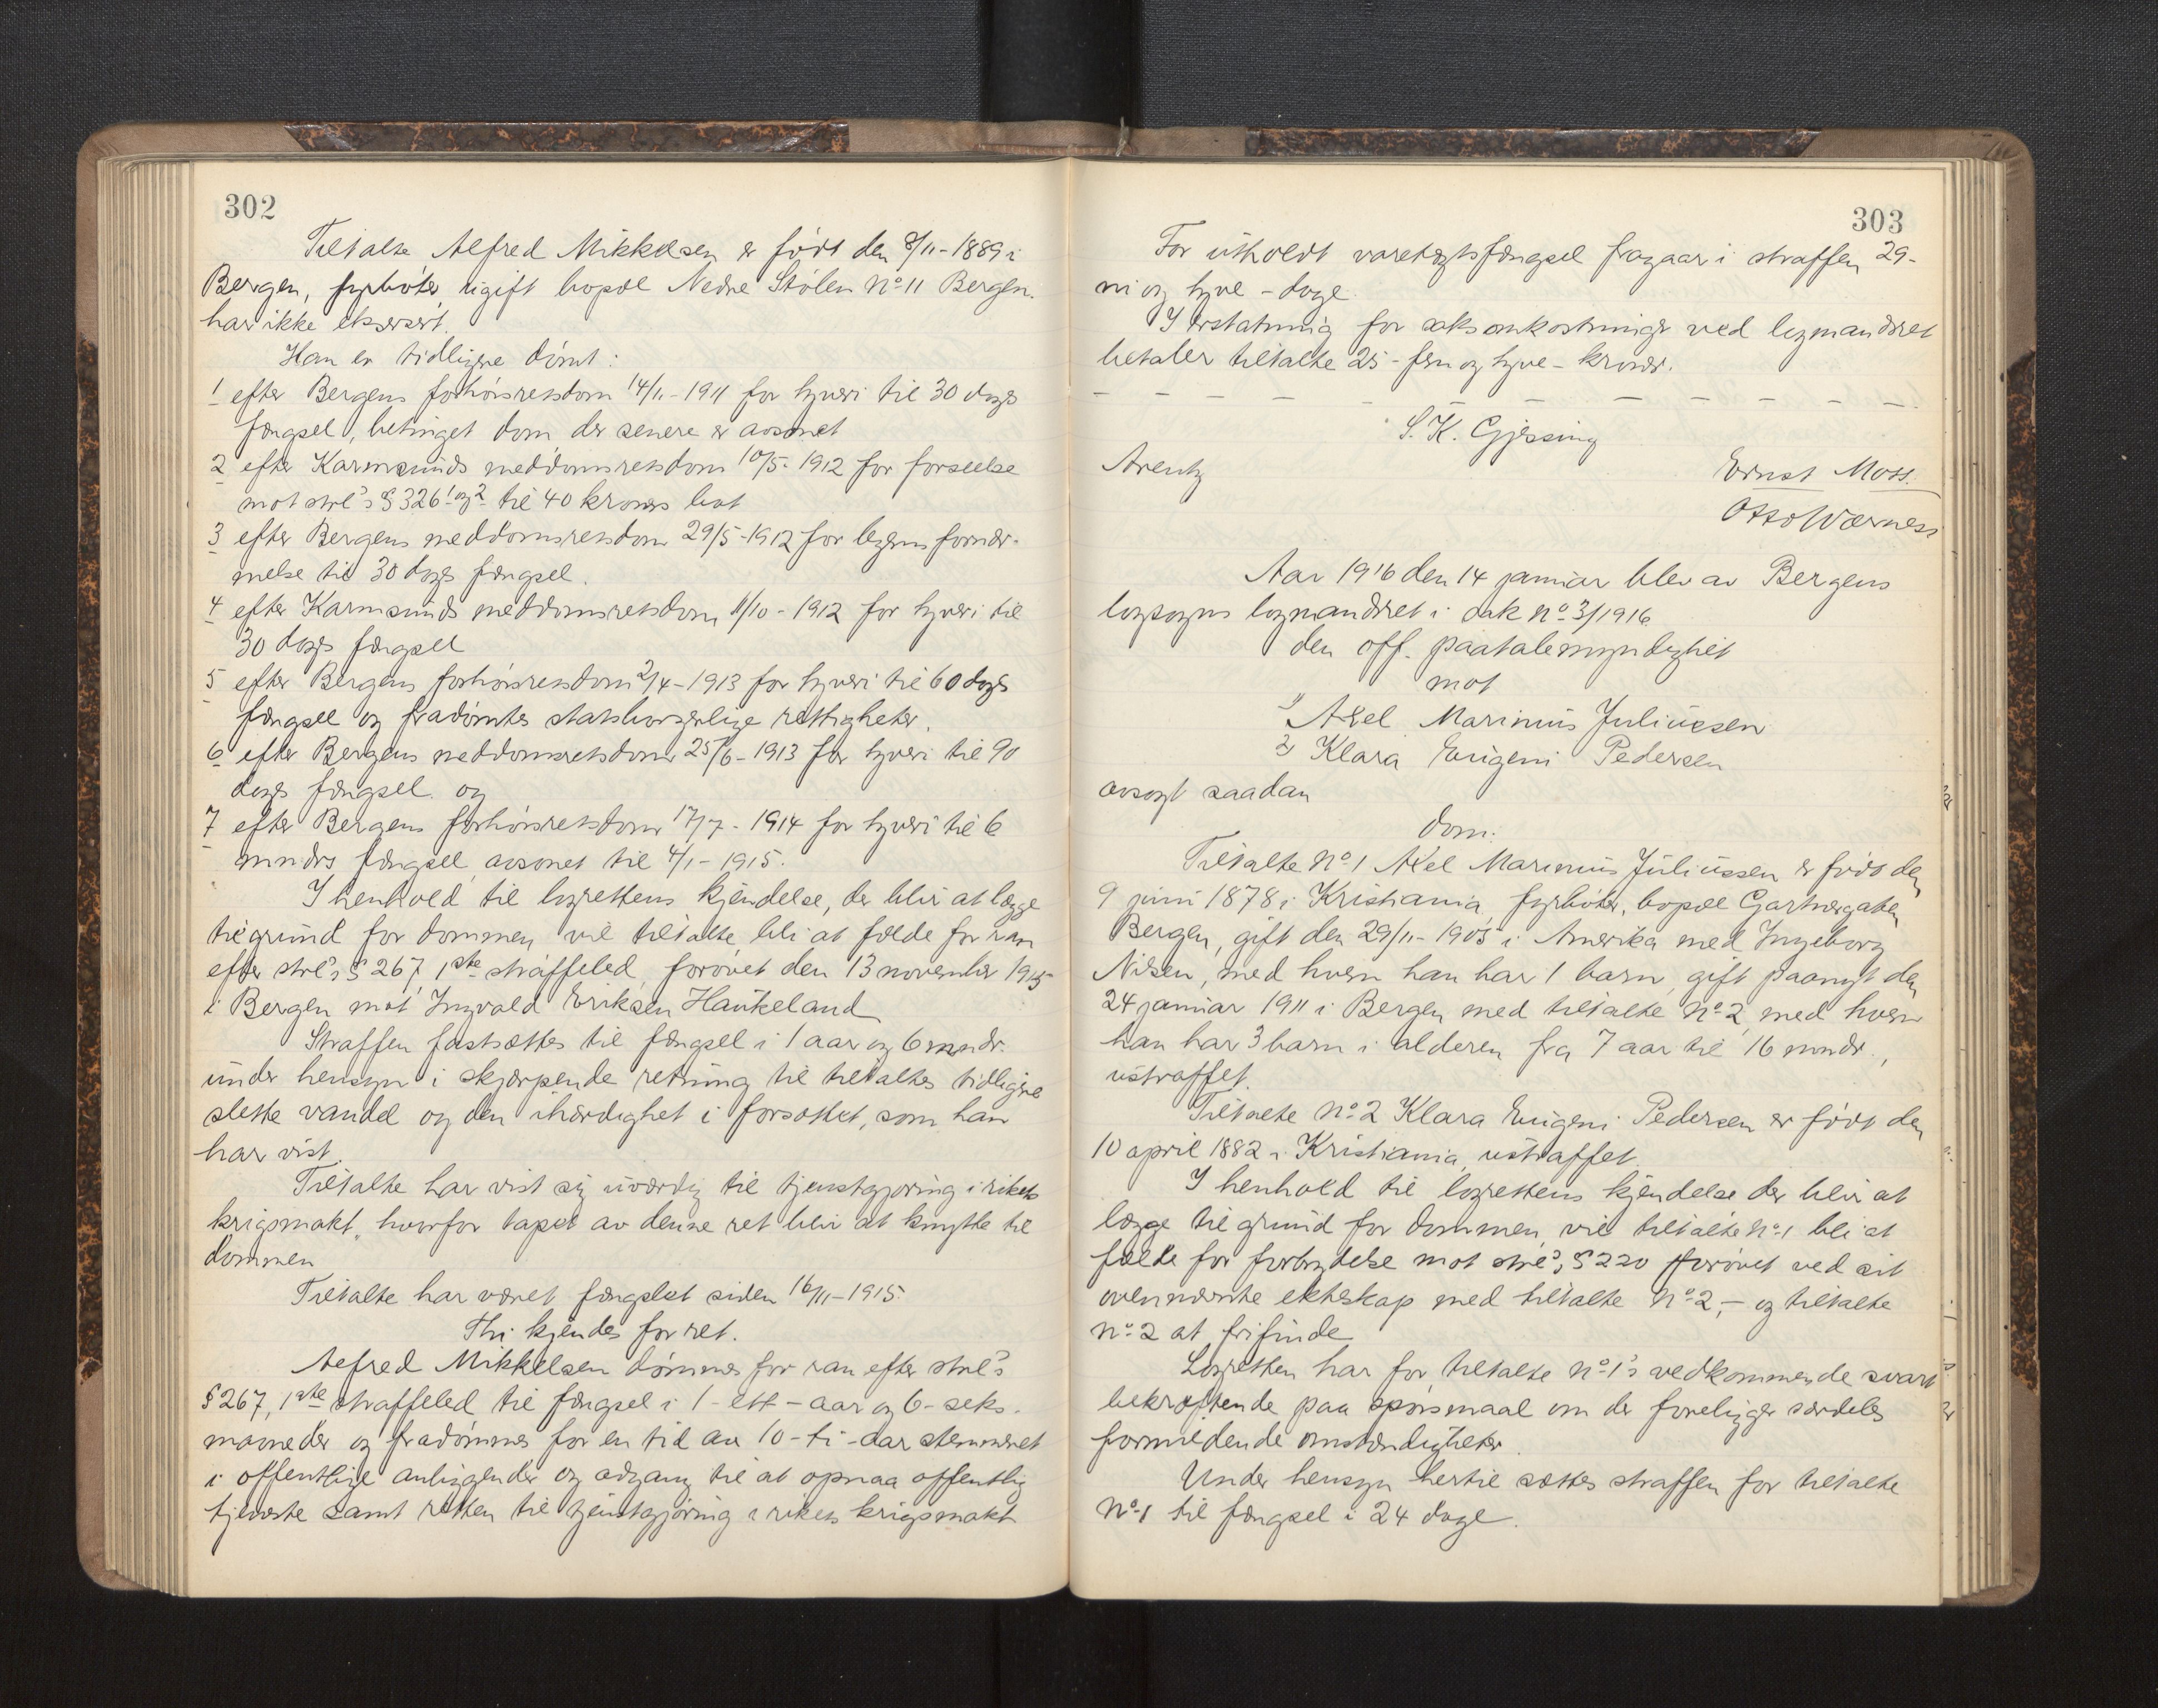 302
Tiltalte Alfred Mikkelsen er født den 8/11-1889 i
Bergen, fyrbøter ugift bopæl Nedre Stølen No 11 Bergen.
har ikke eksersert.
Han er tidligere dømt:
1 efter Bergens forhørsretsdom 14/11-1911 for tyveri til 30 dages
fængsel, betinget dom der senere er avsonet
2 efter Karmsunds meddomsretsdom 10/5-1912 for forseelse
mot strl's § 326 1 og 2 til 40 kroners bot
3 efter Bergens meddomsretsdom 29/5-1912 for legemsfornær-
melse til 30 dages fængsel.
4 efter Karmsunds meddomsretsdom 11/10-1912 for tyveri til
30 dages fængsel
5 efter Bergens forhørsretsdom 2/4-1913 for tyveri til 60 dages
fængsel og fradømtes statsborgerlige rettigheter.
6 efter Bergens meddomsretsdom 25/6-1913 for tyveri til 90
dages fængsel og
7 efter Bergens forhørsretsdom 17/7-1914 for tyveri til 6
mndrs fængsel, avsonet til 4/1-1915.
I henhold til lagrettens kjendelse, der blir at lægge
til grund for dommen vil tiltalte bli at fælde for ran
efter strl's § 267, 1ste straffeled, forøvet den 13 november 1915
i Bergen mot Ingvald Eriksen Haukeland
Straffen fastsættes til fængsel i 1 aar og 6 mndr.
under hensyn i skjærpende retning til tiltaltes tidligere
slette vandel og den ihærdighet i forsættet, som han
har vist.
Tiltalte har vist sig uværdig til tjenstgjøring i rikets
krigsmakt, hvorfor tapet av denne ret blir at knytte til
dommen
Tiltalte har været fængslet siden 16/11-1915.
Thi kjendes for ret.
Alfred Mikkelsen dømmes for ran efter strl's
§ 267, 1ste straffeled til fængsel i 1-ett-aar og 6-seks-
maaneder og fradømmes for en tid av 10-ti-aar stemmeret
i offentlige anliggender og adgang til at opnaa offentlig
tjeneste samt retten til tjenstgjøring i rikets krigsmakt
303
For utholdt varetægtsfængsel fragaar i straffen 29-
ni og tyve-dage.
I erstatning for saksomkostninger ved lagmandsret
betaler tiltalte 25-fem og tyve-kroner.
S. K. Gjessing
Arentz
Ernst Moss.
Otto Wærness
Aar 1916 den 14 januar blev av Bergens
lagsogns lagmandsret i sak No 3/1916
den off. paatalemyndighet
mot
1) Axel Marinius Juliussen
2) Klara Eugeni Pedersen
avsagt saadan
dom:
Tiltalte No 1 Axel Marinius Juliussen er født den
9 juni 1878 i Kristiania, fyrbøter, bopæl Gartnergaten
Bergen, gift den 29/11-1905 i Amerika med Ingeborg
Nilsen, med hvem han har 1 barn, gift paanyt den
24 januar 1911 i Bergen med tiltalte No 2, med hvem
han har 3 barn i alderen fra 7 aar til 16 mndr.,
ustraffet.
Tiltalte No 2 Klara Eugeni Pedersen er født den
10 april 1882 i Kristiania, ustraffet.
I henhold til lagrettens kjendelse der blir at
lægge til grund for dommen, vil tiltalte No 1 bli at
fælde for forbrydelse mot strl's § 220 forøvet ved sit
ovennævnte ekteskap med tiltalte No 2, – og tiltalte
No 2 at frifinde
Lagretten har for tiltalte No 1's vedkommende svart
bekræftende paa spørsmaal om der foreligger særdeles
formildende omstændigheter.
Under hensyn hertil sættes straffen for tiltalte
No 1 til fængsel i 24 dage.